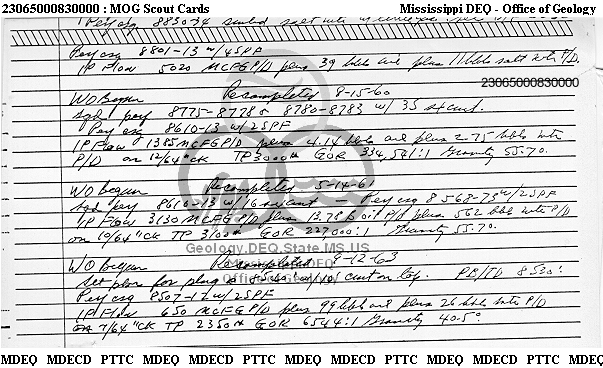 23065000830000 : MOG Scout Cards Mississippi DEQ - Office of Geology
Perf csg 8801-13 w/4SPF
IP Flow 5020 MCFGP/D plus 39 bbls oil plus 11 bbls salt wtr P/D.
23065000830000
WO Began Recompleted 8-15-60
Sqd perf 8775-8778 & 8780-8783 w/ 35 sx cmt.
Perf csg 8610-13 w/2SPF
IP Flow 1385 MCFGP/D plus 4.14 bbls oil plus 2.75 bbls wtr
P/D on 12/64" CK TP 3000# GOR 334,541:1 Gravity 55.70.
WO began Recompleted 5-14-61
Sqd perf 8610-13 w/16 sx cmt - Perf csg 8568-73 w/2SPF
IP Flow 3130 MCFGP/D plus 13.78 BO P/D plus 562 bbls wtr P/D
on 10/64" CK TP 3100# GOR 227000:1 Gravity 55.70.
Geology.DEQ.State.MS.US
WO began Recompleted 9-12-63
Set plug @ 8540' w/10' cmt on top. PB/TD 8530'.
Perf csg 8507-12 w/2SPF
IP Flow 650 MCFGP/D plus 99 bbls oil plus 26 bbls wtr P/D
on 7/64" CK TP 2350# GOR 6544:1 Gravity 40.5°
MDEQ MDECD PTTC MDEQ MDECD PTTC MDEQ MDECD PTTC MDEQ MDECD PTTC MDEQ